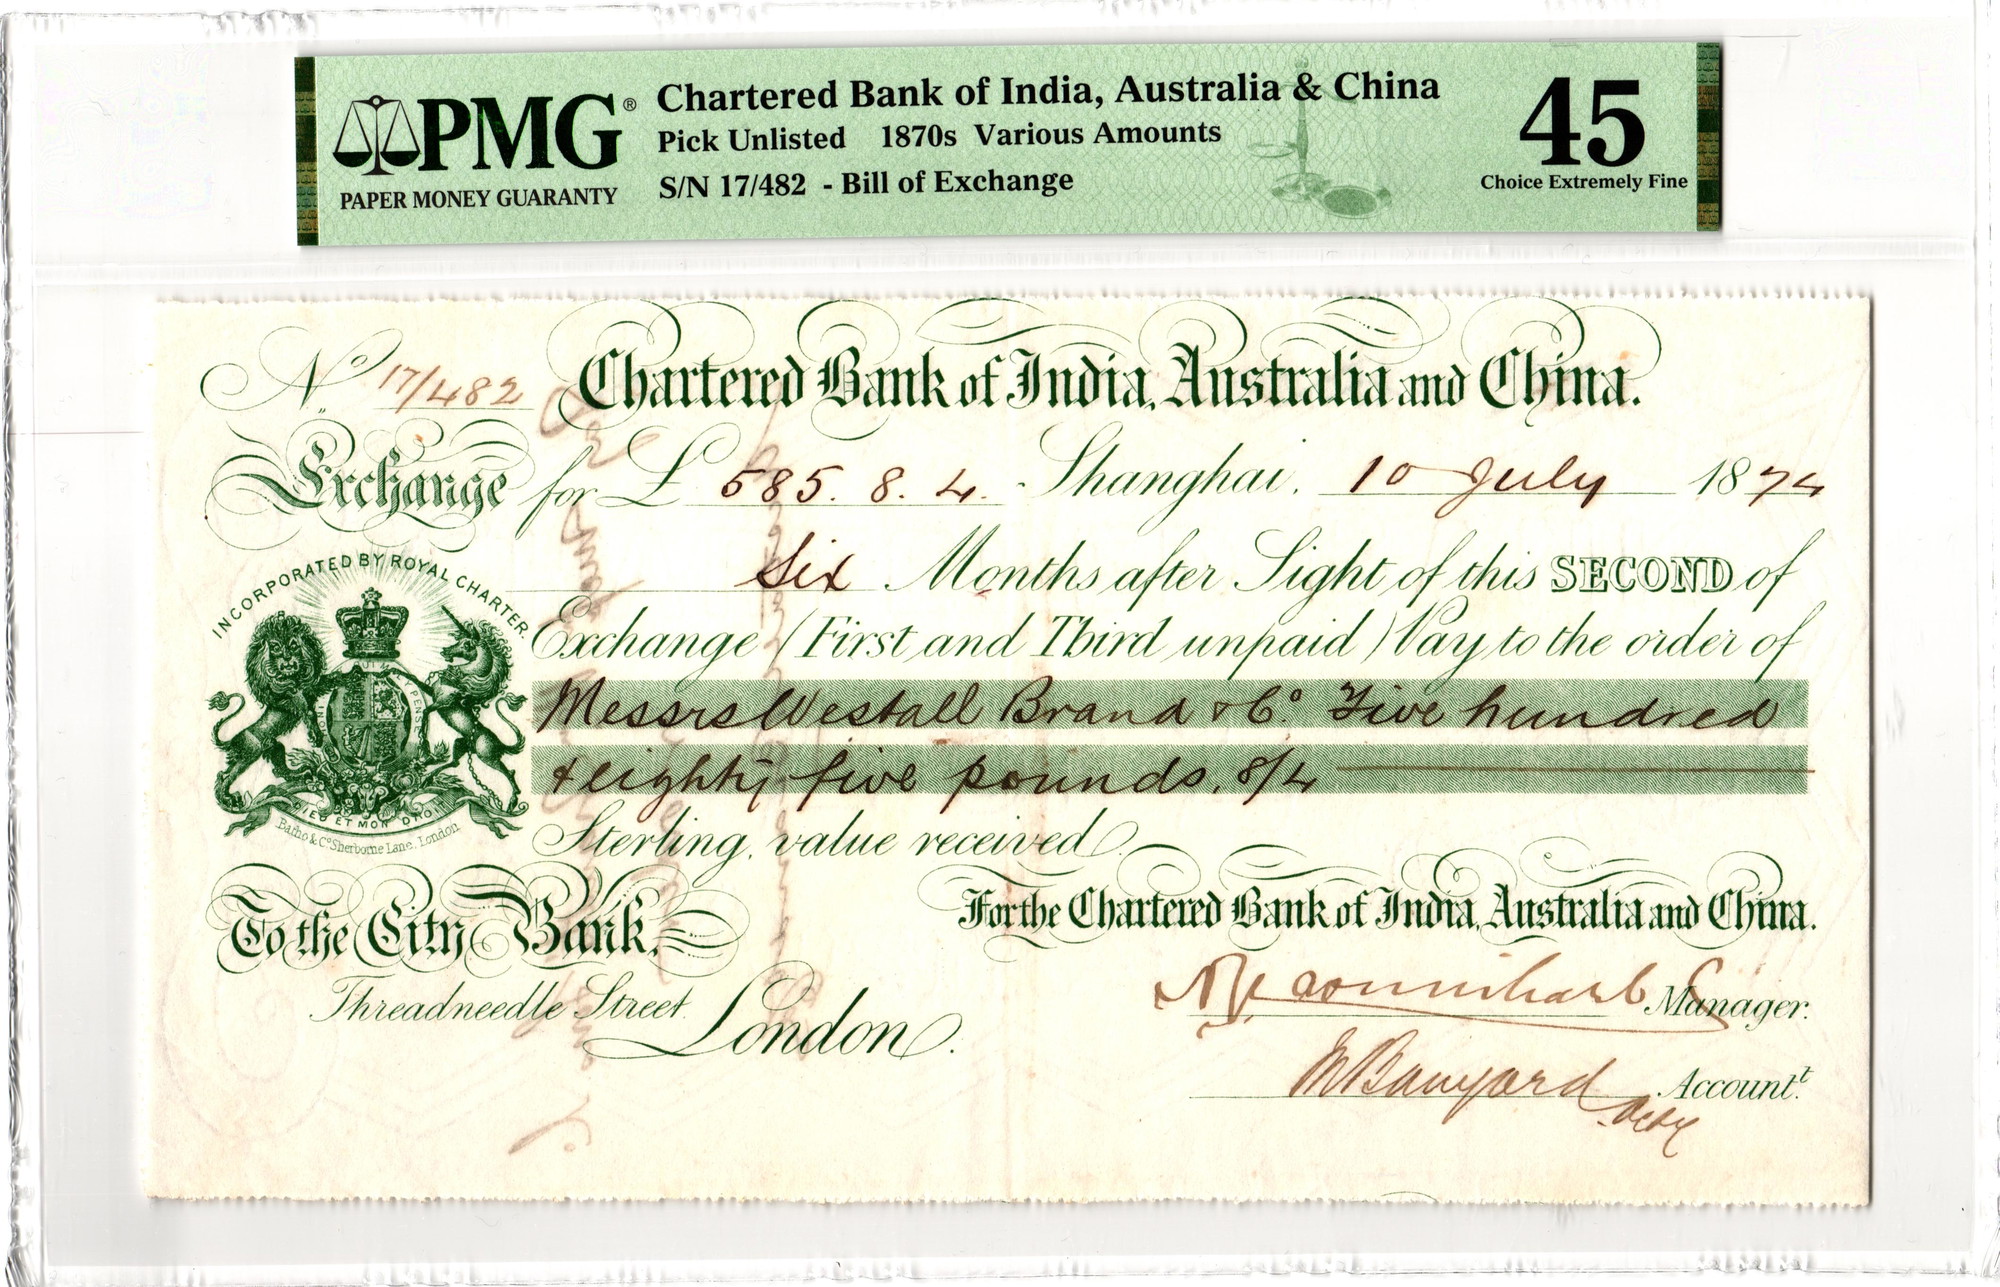 PMG®
PAPER MONEY GUARANTY
Chartered Bank of India, Australia & China
Pick Unlisted 1870s Various Amounts
S/N 17/482 - Bill of Exchange
45
Choice Extremely Fine
No. 17/482 Chartered Bank of India, Australia and China.
Exchange for £ 585. 8. 4. Shanghai, 10 July 1874
Six Months after Sight of this SECOND of
Exchange (First and Third unpaid) Pay to the order of
Messrs Westall Brand & Co. Five hundred
& eighty five pounds, 8/4
Sterling, value received.
INCORPORATED BY ROYAL CHARTER.
DIEU ET MON DROIT
Batho & Co. Sherborne Lane, London.
To the City Bank,
Threadneedle Street.
London.
For the Chartered Bank of India, Australia and China.
Manager.
Banyard Account.t